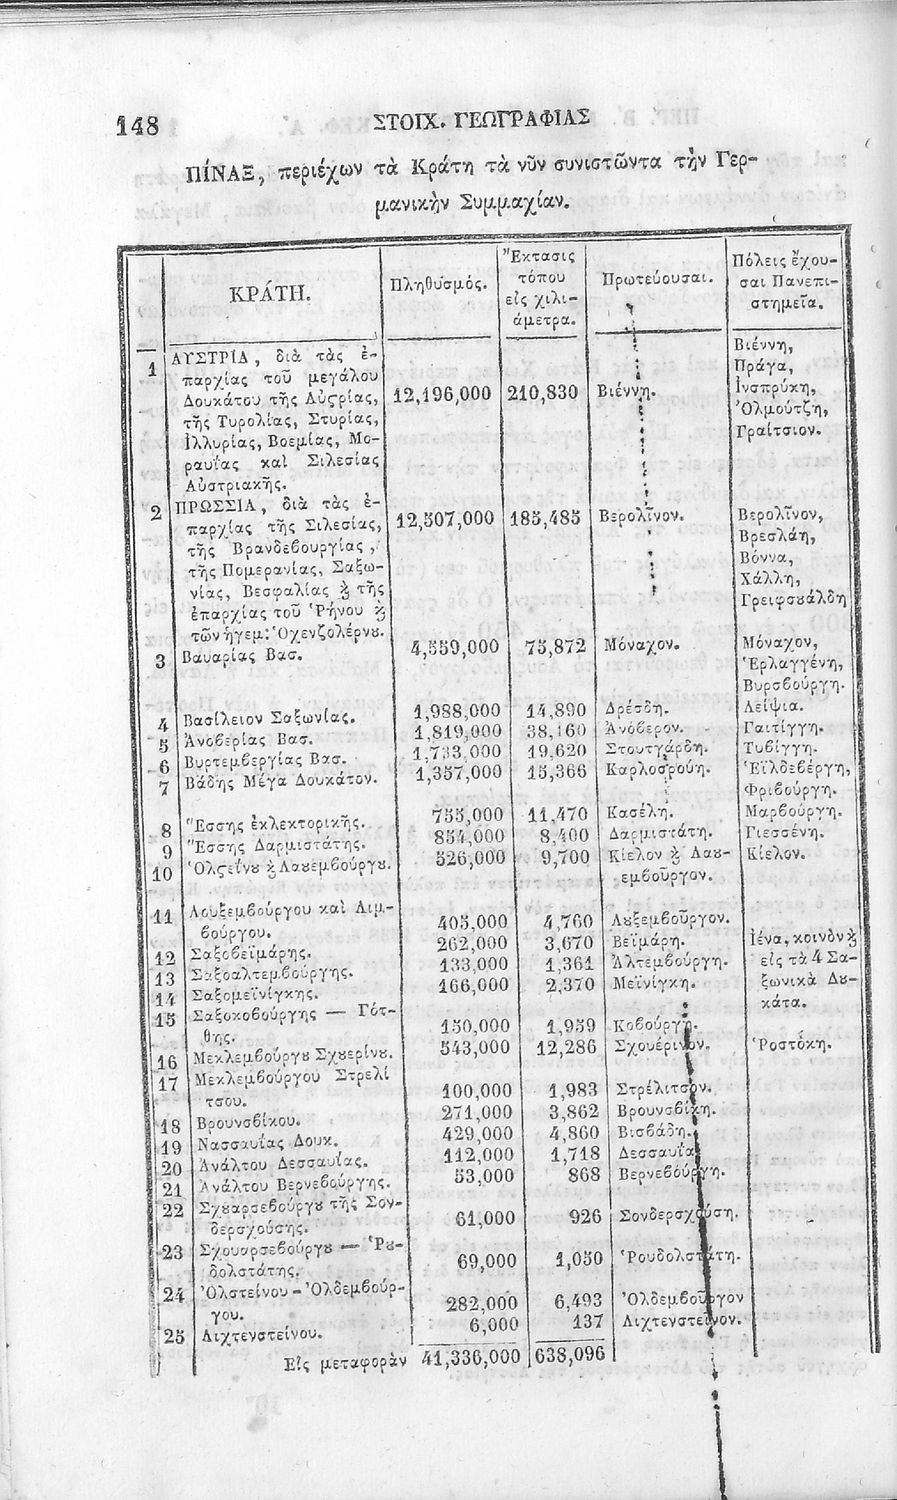 148 ΣΤΟΙΧ. ΓΕΩΓΡΑΦΙΑΣ
ΠΙΝΑΞ, περιέχων τὰ Κράτη τὰ νῦν συνιστῶντα τὴν Γερ-
μανικὴν Συμμαχίαν.
ΚΡΑΤΗ. Πληθυσμός. Ἔκτασις τόπου εἰς χιλι- άμετρα. Πρωτεύουσαι. Πόλεις ἔχου- σαι Πανεπι- στημεῖα.
1 ΑΥΣΤΡΙΑ, διὰ τὰς ἐ- Βιέννη,
παρχίας τοῦ μεγάλου Πράγα,
Δουκάτου τῆς Αὐςρίας, 12,196,000 210,830 Βιέννη. Ἰνσπρύκη,
τῆς Τυρολίας, Στυρίας, Ὀλμούτζη,
Ἰλλυρίας, Βοεμίας, Μο- Γραίτσιον.
ραυΐας καὶ Σιλεσίας
Αὐστριακῆς.
2 ΠΡΩΣΣΙΑ, διὰ τὰς ἐ-
παρχίας τῆς Σιλεσίας, 12,507,000 185,485 Βερολῖνον. Βερολῖνον,
τῆς Βρανδεβουργίας, Βρεσλάη,
τῆς Πομερανίας, Σαξω- Βόννα,
νίας, Βεσφαλίας ϗ τῆς Χάλλη,
ἐπαρχίας τοῦ Ῥήνου ϗ Γρειφσȣάλδη
τῶν ἡγεμ: Ὁχενζολέρνȣ.
3 Βαυαρίας Βασ. 4,559,000 75,872 Μόναχον. Μόναχον,
Ἐρλαγγένη,
Βυρσβούργη.
4 Βασίλειον Σαξωνίας. 1,988,000 14,890 Δρέσδη. Λείψια.
5 Ἀνοβερίας Βασ. 1,819,000 38,160 Ἀνόβερον. Γαιτίγγη.
6 Βυρτεμβεργίας Βασ. 1,733,000 19,620 Στουτγάρδη. Τυβίγγη.
7 Βάδης Μέγα Δουκάτον. 1,357,000 15,366 Καρλοσρούη. Ἐϊλδεβέργη,
Φριβούργη.
8 Ἔσσης ἐκλεκτορικῆς. 755,000 11,470 Κασέλη. Μαρβούργη.
9 Ἔσσης Δαρμιστάτης. 854,000 8,400 Δαρμιστάτη. Γιεσσένη.
10 Ὁλςεΐνȣ ϗ Λαυεμβούργȣ. 526,000 9,700 Κίελον ϗ Λαυ- Κίελον.
εμβοῦργον.
11 Λουξεμβούργου καὶ Λιμ-
βούργου. 405,000 4,760 Λȣξεμβοῦργον.
12 Σαξοβεϊμάρης. 262,000 3,670 Βεϊμάρη. Ἰένα, κοινὸν ϗ
13 Σαξοαλτεμβούργης. 133,000 1,361 Ἀλτεμβούργη. εἰς τὰ 4 Σα-
14 Σαξομεϊνίγκης. 166,000 2,370 Μεϊνίγκη. ξωνικὰ Δȣ-
15 Σαξοκοβούργης — Γότ- κάτα.
θης. 150,000 1,959 Κοβούργη.
16 Μεκλεμβούργȣ Σχȣερίνȣ. 543,000 12,286 Σχουέρινον. Ῥοστόκη.
17 Μεκλεμβούργου Στρελί
τσου. 100,000 1,983 Στρέλιτσον.
18 Βρουνσβίκου. 271,000 3,862 Βρουνσβίκη.
19 Νασσαυίας Δουκ. 429,000 4,860 Βισβάδη.
20 Ἀνάλτου Δεσσαυΐας. 112,000 1,718 Δεσσαυΐα
21 Ἀνάλτου Βερνεβούργης. 53,000 868 Βερνεβούργη.
22 Σχȣαρσεβούργȣ τῆς Σον-
δερσχούσης. 61,000 926 Σονδερσχούση.
23 Σχουαρσεβούργȣ — Ῥȣ-
δολστάτης. 69,000 1,050 Ῥουδολστάτη.
24 Ὁλστείνου - Ὀλδεμβούρ-
γου. 282,000 6,493 Ὀλδεμβοῦργον
25 Λιχτενστείνου. 6,000 137 Λιχτενστεῖνον.
Εἰς μεταφορὰν 41,336,000 638,096